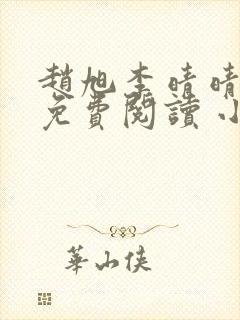 趙旭李晴晴
免費閱讀小
華山俠